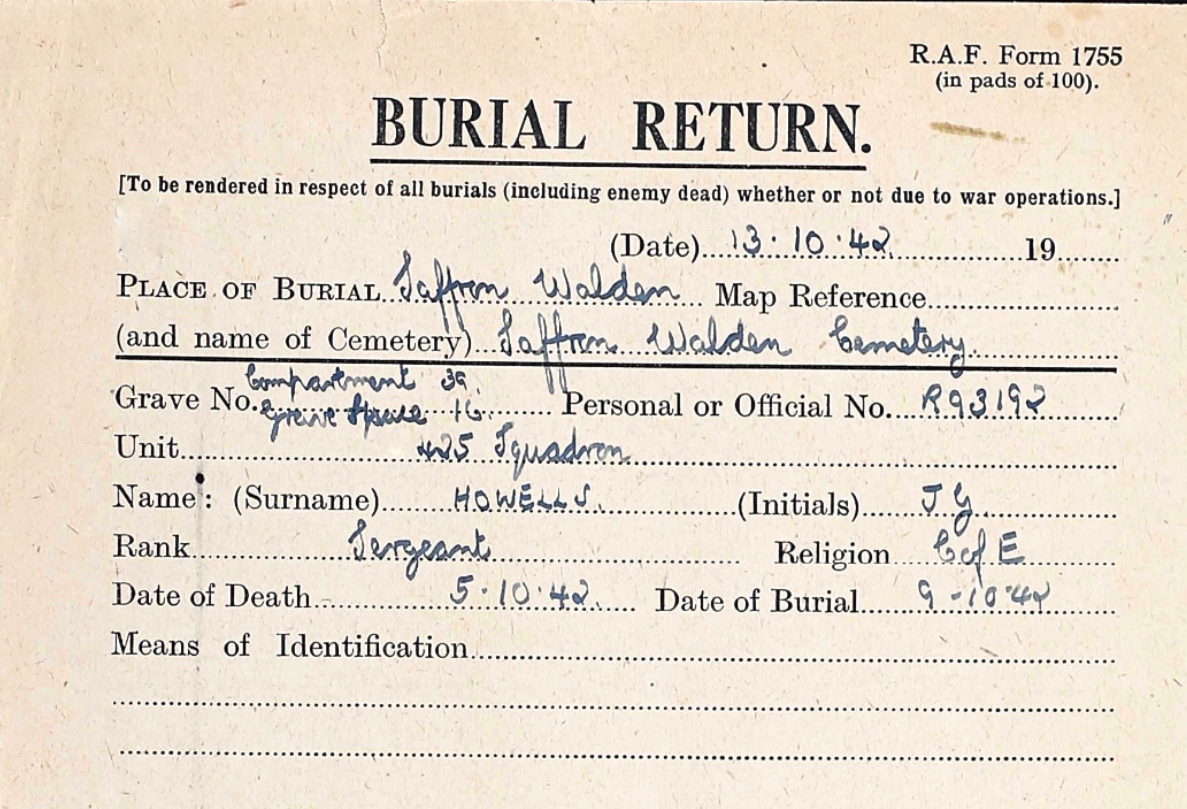 R.A.F. Form 1755
(in pads of 100).
BURIAL RETURN.
[To be rendered in respect of all burials (including enemy dead) whether or not due to war operations.]
(Date) 13.10.42. 19
PLACE OF BURIAL Saffron Walden Map Reference
(and name of Cemetery) Saffron Walden Cemetery.
Compartment 39.
Grave No. Grave Space 16. Personal or Official No. R93192
Unit 425 Squadron
Name: (Surname) HOWELLS. (Initials) J G
Rank Sergeant Religion C of E
Date of Death 5.10.42. Date of Burial 9-10.42
Means of Identification